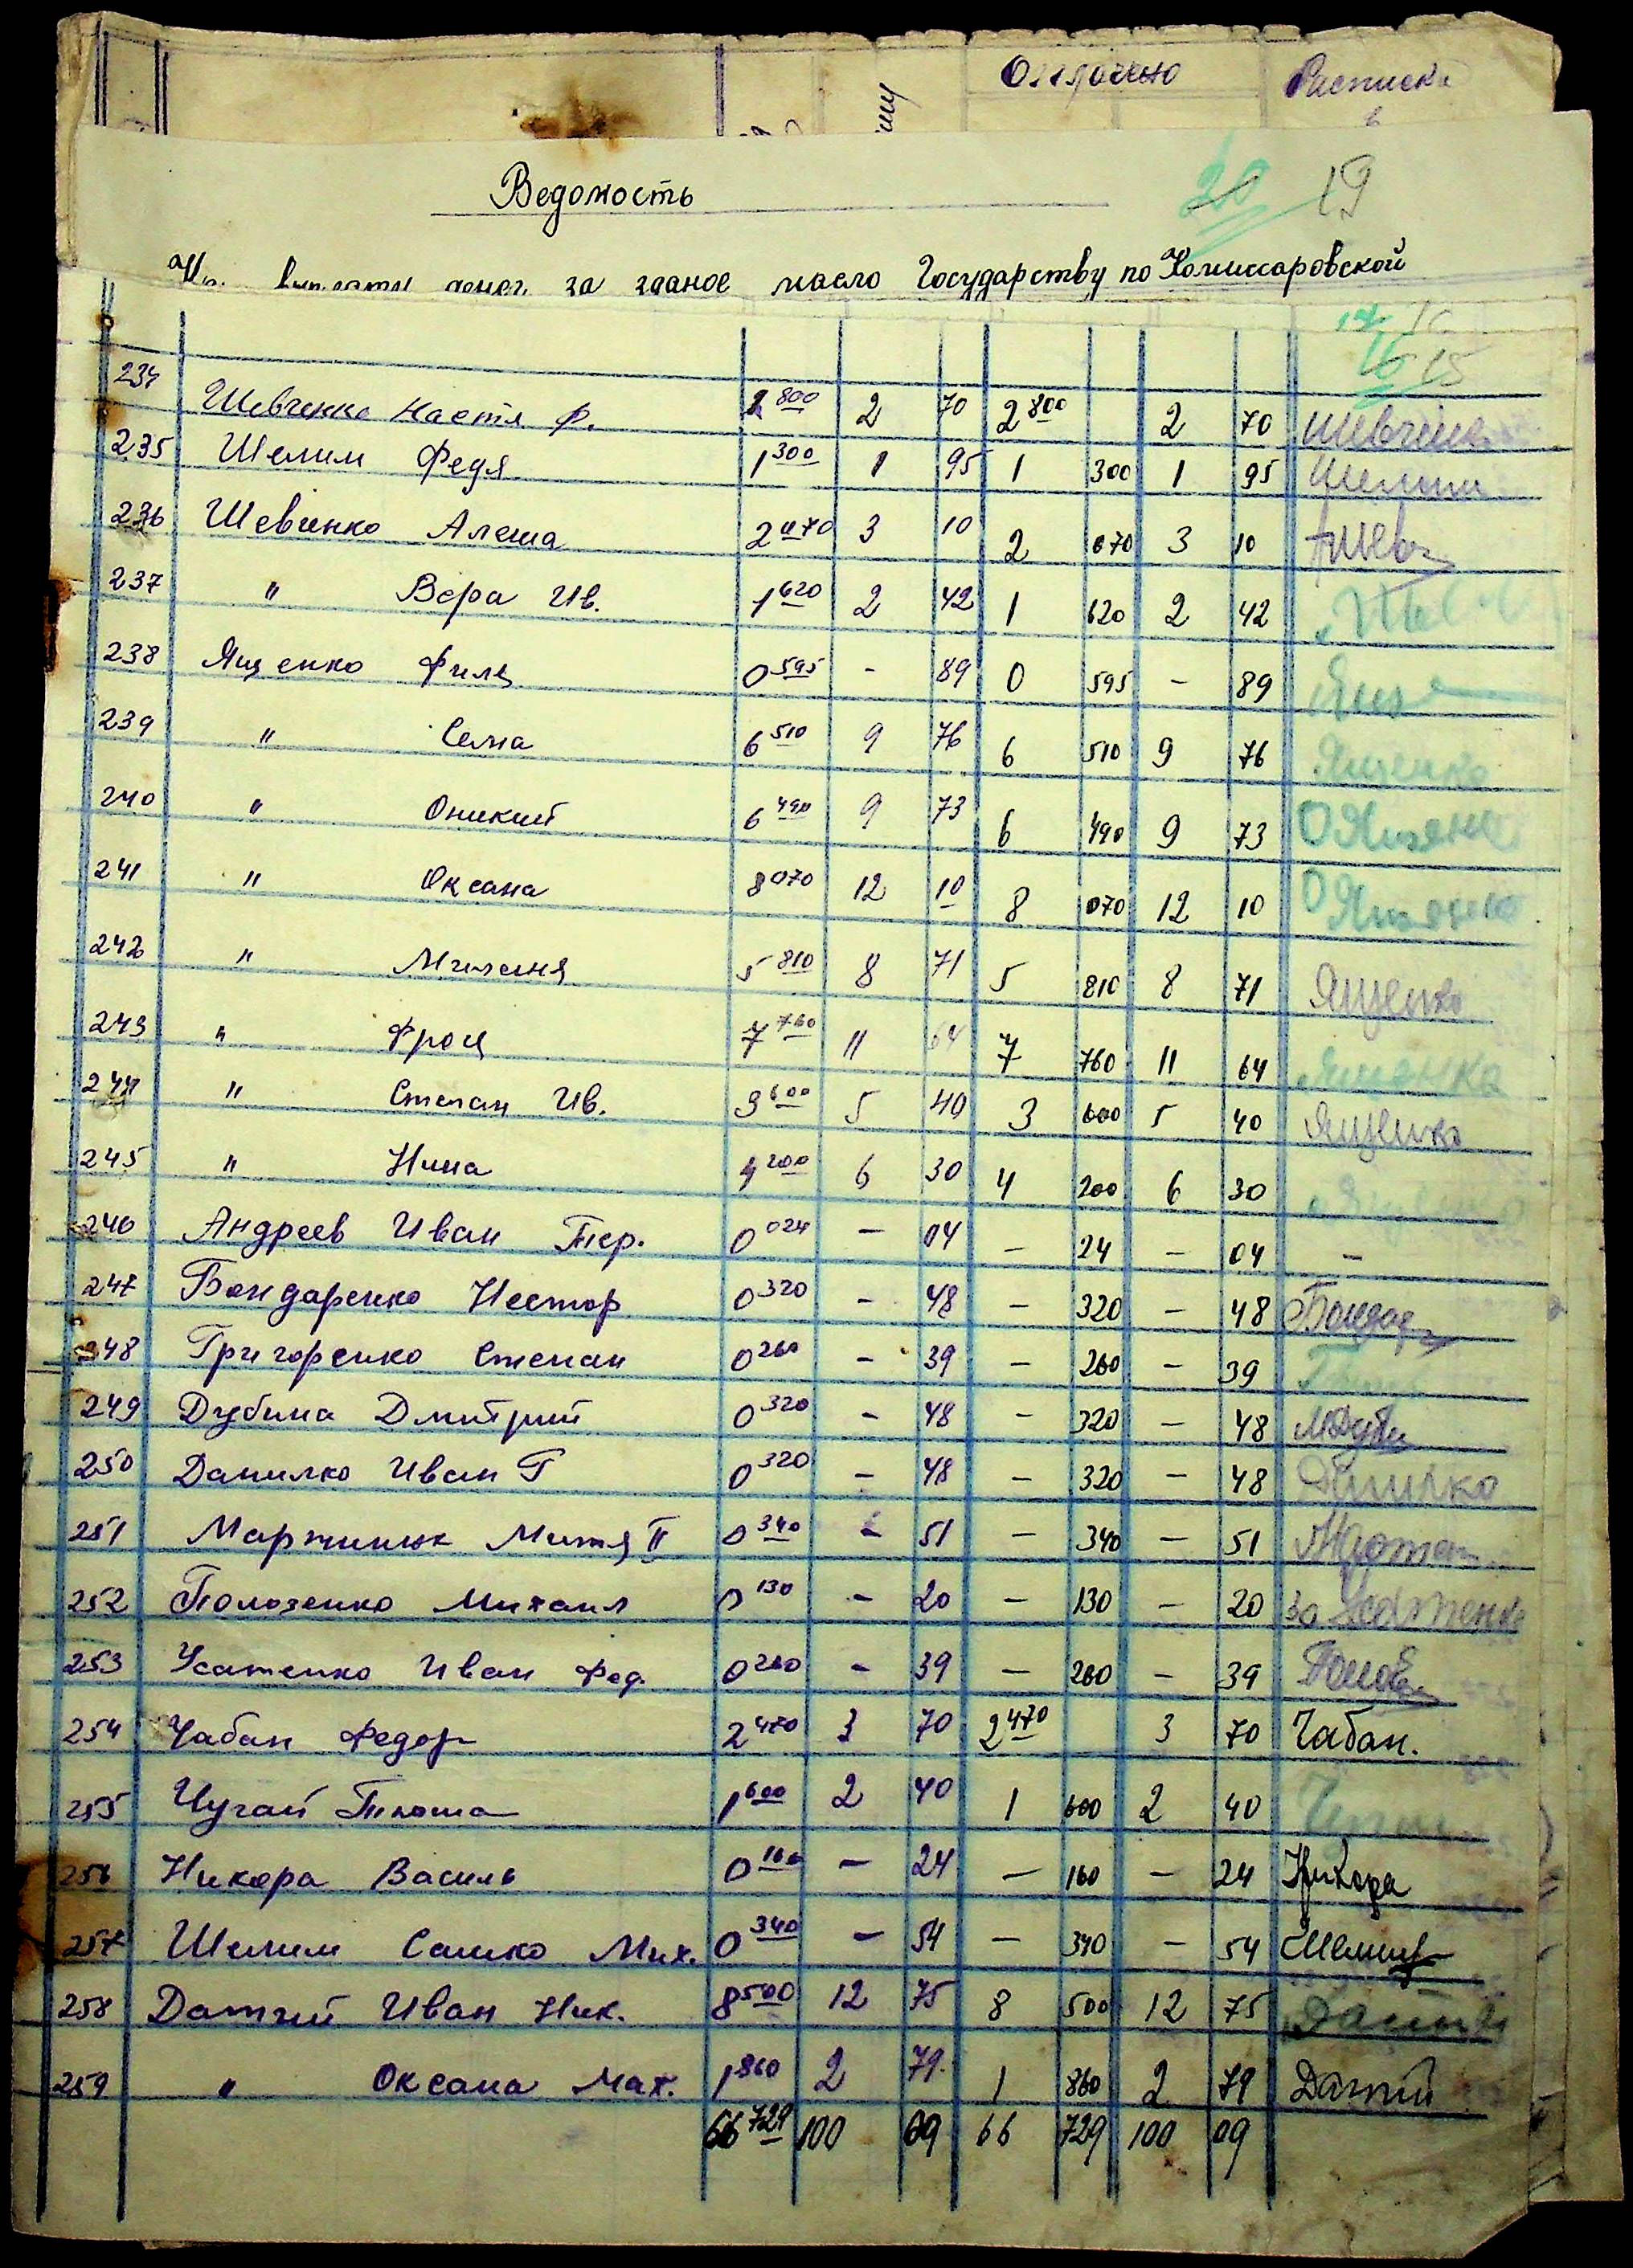 Оплачено Расписка
в
Ведомость 20 19
выплаты денег за зданое масло Государству по Комиссаровской
16 15
234 Шевченко Настя Ф. 1 800 2 70 2 800 2 70
235 Шелим Федя 1 300 1 95 1 300 1 95 Шелим
236 Шевченко Алеша 2 070 3 10 2 070 3 10 АШев
237 " Вера Ив. 1 620 2 42 1 620 2 42
238 Ященко Филя 0 595 - 89 0 595 - 89
239 " Сема 6 510 9 76 6 510 9 76 Ященко
240 " Оникий 6 490 9 73 6 490 9 73
241 " Оксана 8 070 12 10 8 070 12 10
242 " Милания 5 810 8 71 5 810 8 71 Ященко
243 " Фрося 7 760 11 64 7 760 11 64
244 " Степан Ив. 3 600 5 40 3 600 5 40 Ященко
245 " Нина 4 200 6 30 4 200 6 30
246 Андреев Иван Тер. 0 024 - 04 - 24 - 04 -
247 Бондаренко Нестор 0 320 - 48 - 320 - 48 Бондар
248 Григоренко Степан 0 260 - 39 - 260 - 39
249 Дубина Дмитрий 0 320 - 48 - 320 - 48
250 Данилко Иван Г 0 320 - 48 - 320 - 48 Данилко
251 Мартинюк Митя II 0 340 - 51 - 340 - 51
252 Полозенко Михаил 0 130 - 20 - 130 - 20 за Усатенко
253 Усатенко Иван Фед. 0 260 - 39 - 260 - 39
254 Чабан Федор 2 470 3 70 2 470 3 70 Чабан.
255 Чугай Тимоша 1 600 2 40 1 600 2 40
256 Никора Василь 0 160 - 24 - 160 - 24 Никора
257 Шелим Сашко Мих. 0 340 - 54 - 340 - 54 Шелим
258 Датий Иван Ник. 8 500 12 75 8 500 12 75
259 " Оксана Мах. 1 860 2 79 1 860 2 79
66 729 100 09 66 729 100 09